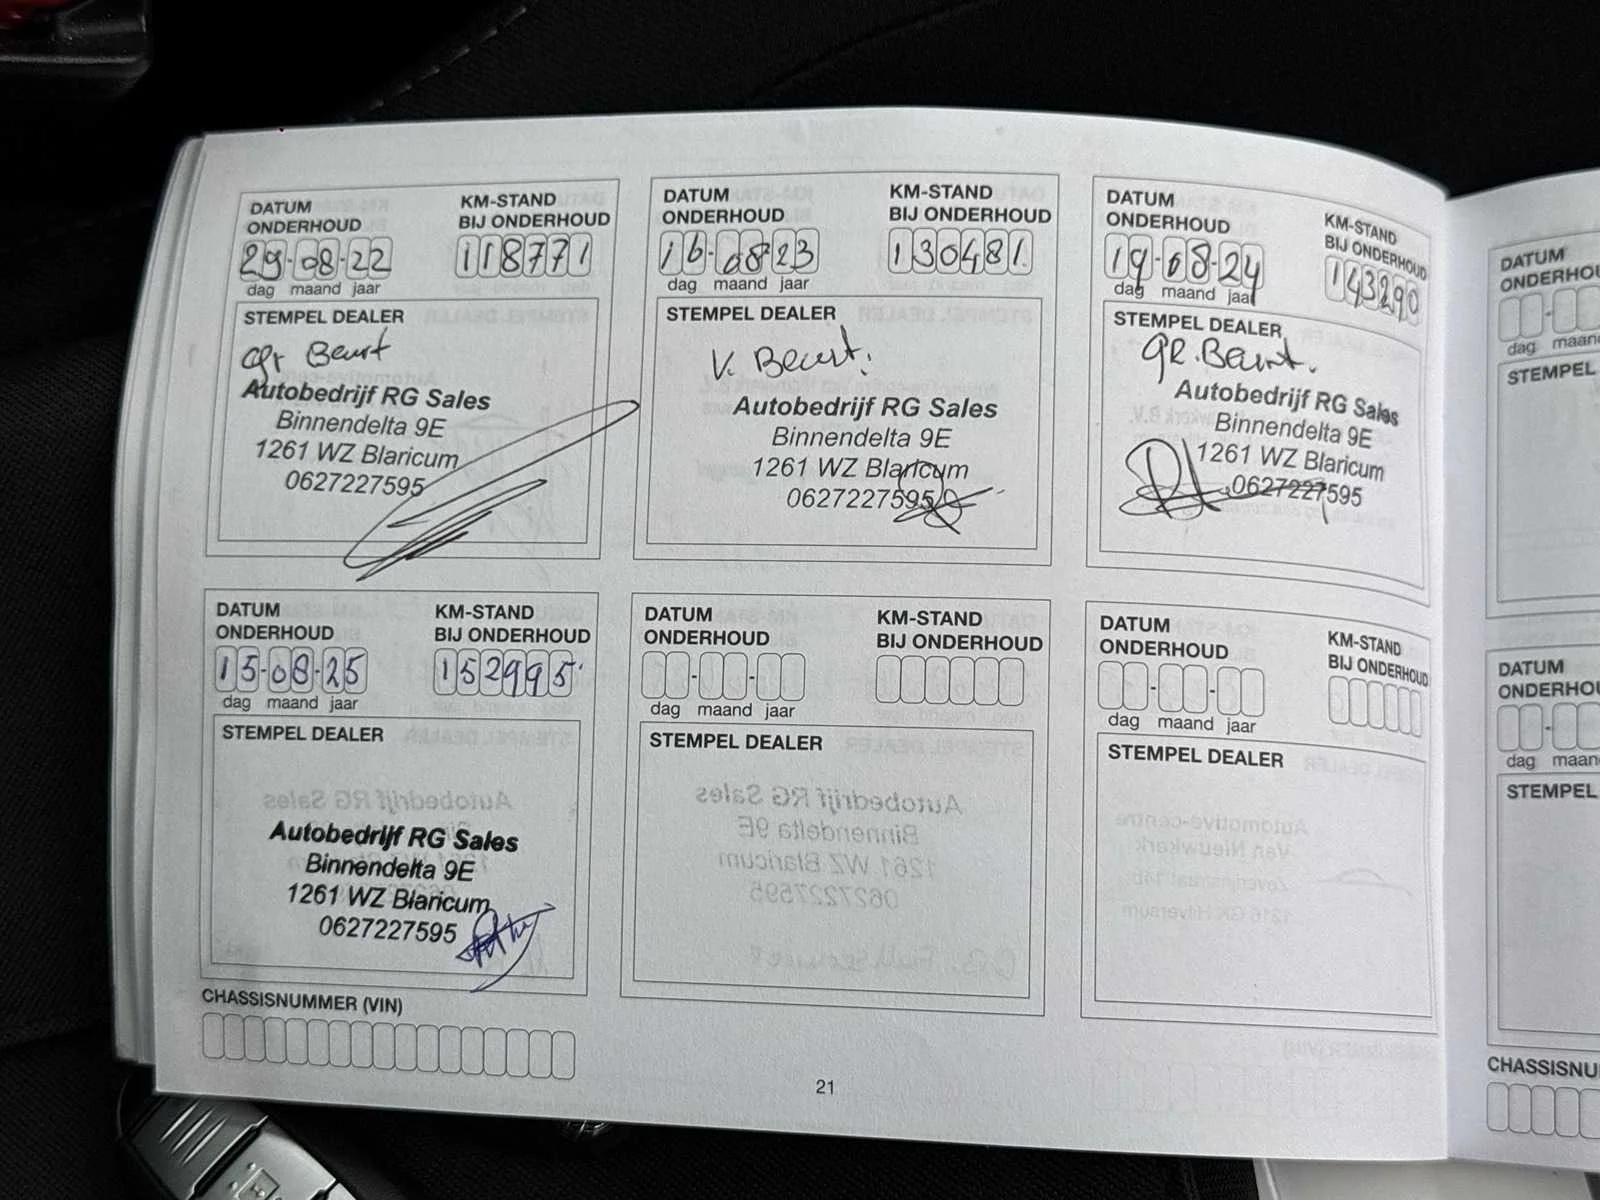 DATUM
ONDERHOUD
KM-STAND
BIJ ONDERHOUD
29-08-22
118771
dag maand jaar
STEMPEL DEALER
gr Beurt
Autobedrijf RG Sales
Binnendelta 9E
1261 WZ Blaricum
0627227595
DATUM
ONDERHOUD
KM-STAND
BIJ ONDERHOUD
16-08-23
130481
dag maand jaar
STEMPEL DEALER
V. Beurt.
Autobedrijf RG Sales
Binnendelta 9E
1261 WZ Blaricum
0627227595
DATUM
ONDERHOUD
KM-STAND
BIJ ONDERHOUD
19-08-24
143290
dag maand jaar
STEMPEL DEALER
GR. Beurt.
Autobedrijf RG Sales
Binnendelta 9E
1261 WZ Blaricum
0627227595
DATUM
ONDERHOUD
KM-STAND
BIJ ONDERHOUD
15-08-25
152995
dag maand jaar
STEMPEL DEALER
Autobedrijf RG Sales
Binnendelta 9E
1261 WZ Blaricum
0627227595
DATUM
ONDERHOUD
KM-STAND
BIJ ONDERHOUD
dag maand jaar
STEMPEL DEALER
DATUM
ONDERHOUD
KM-STAND
BIJ ONDERHOUD
dag maand jaar
STEMPEL DEALER
CHASSISNUMMER (VIN)
21
DATUM
ONDERHOU
dag maan
STEMPEL
DATUM
ONDERHOU
dag maan
STEMPEL
CHASSISNU